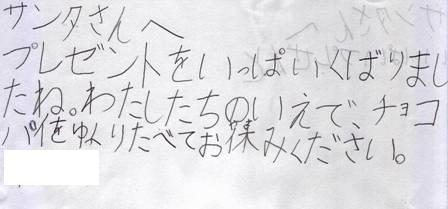 サンタさんへ
プレゼントをいっぱいくばりまし
たね。わたしたちのいえで、チョコ
パイをゆくりたべてお休みください。